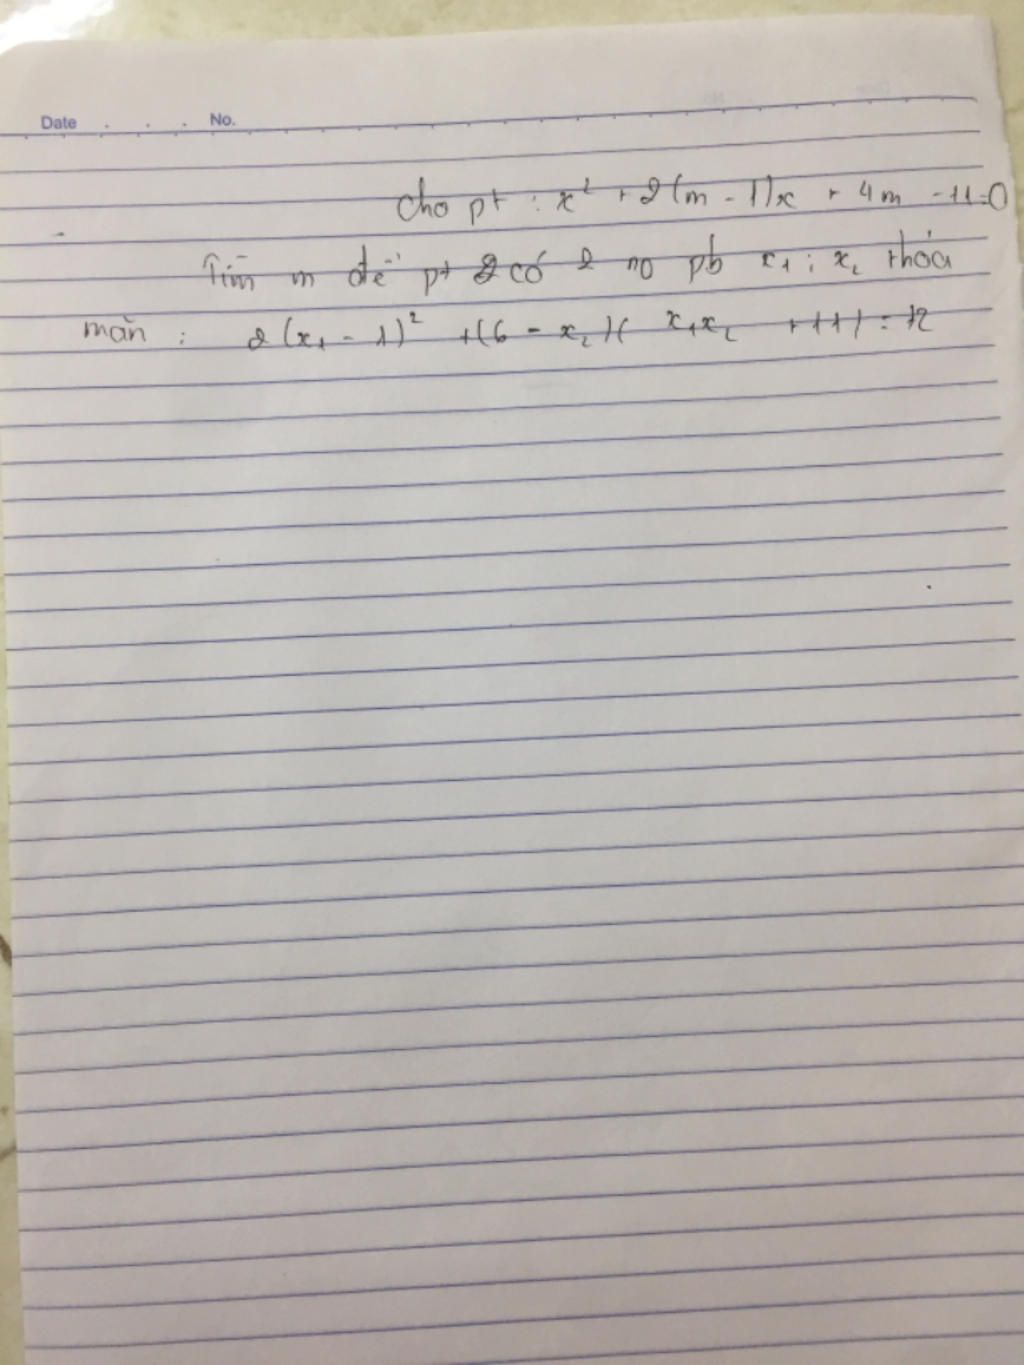 Date . . . No.
Cho pt : x² + 2(m - 1)x + 4m - 11 = 0
Tìm m để pt có 2 no pb x₁ ; x₂ thỏa
mãn : 2(x₁ - 1)² + (6 - x₂)( x₁x₂ + 11) = 72